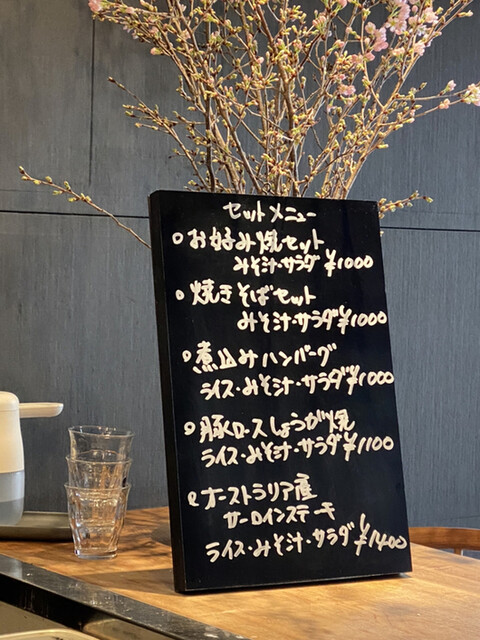 セットメニュー
○お好み焼セット
みそ汁・サラダ ¥1000
○焼きそばセット
みそ汁・サラダ¥1000
○煮込みハンバーグ
ライス・みそ汁・サラダ¥1000
○豚ロースしょうが焼
ライス・みそ汁・サラダ¥1100
○オーストラリア産
サーロインステーキ
ライス・みそ汁・サラダ ¥1400